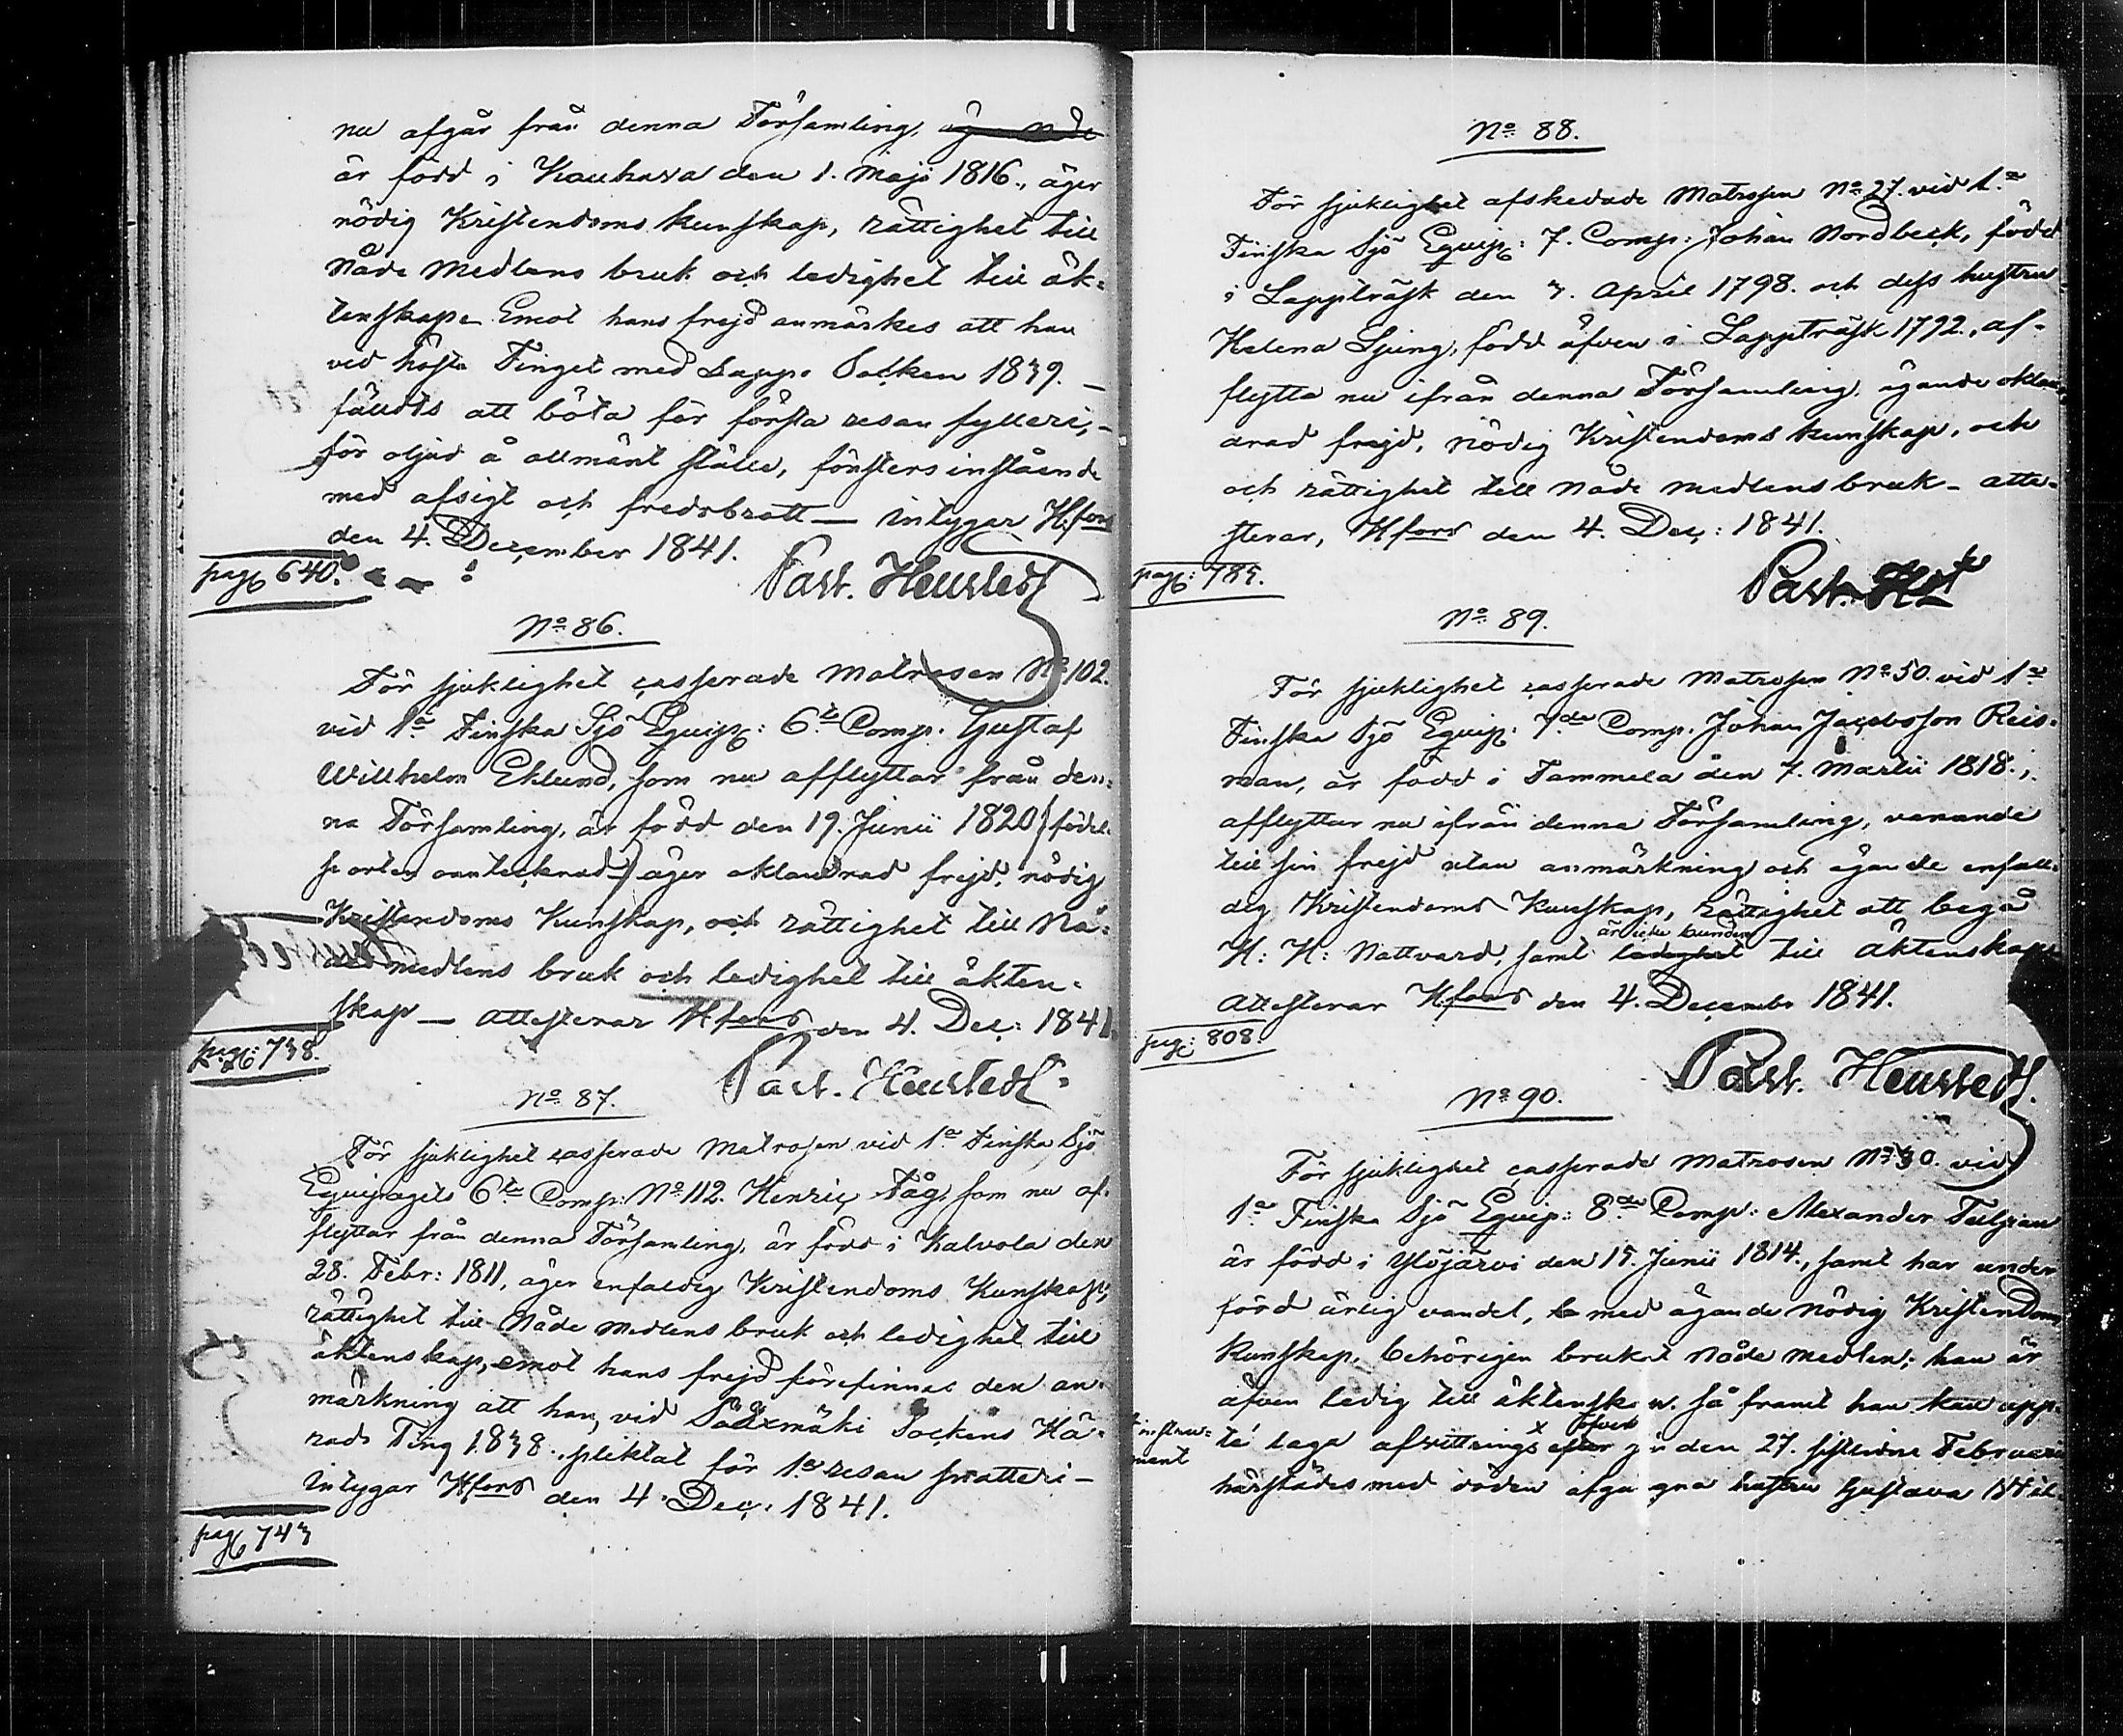 nu afgår från denna Församling,
är född i Kauhava den 1. Maji 1816., äger
nödig Kristendoms kunskap, rättighet till
Nåde Medlens bruk och ledighet till äk-
tenskap. Emot hans frejd anmärkes att han
vid höste Tinget med Lappo Socken 1839. –
fälldts att böta för första resan fylleri, –
för oljud å allmänt ställe, fönsters inslående
med afsigt och fredsbrott – intygar Hfors
den 4. December 1841.
pag 640.
Past. Heurstedt
No 86.
För sjuklighet casserade Matrosen No 102.
vid 1a Finska Sjö Equip: 6te Comp. Gustaf
Willhelm Eklund, som nu afflyttar från den-
na Församling, är född den 19. Junii 1820 (födel-
seorten oantecknad) äger oklandrad frejd, nödig
Kristendoms Kunskap, och rättighet till Nå-
de medlens bruk och ledighet till äkten-
skap – attesterar Hfors den 4. Dec: 1841.
pag: 738.
Past. Heurstedt.
No 87.
För sjuklighet casserade Matrosen vid 1a Finska Sjö
Equipagets 6te Comp: No 112. Henric Tåg, som nu af-
flyttar från denna Församling, är född i Kalvola den
28. Febr: 1811, äger enfaldig Kristendoms Kunskap,
rättighet till Nåde medlens bruk och ledighet till
äktenskap, emot hans frejd förefinnes den an-
märkning att han, vid Sääxmäki Sockens Hä-
rads Ting 1838. pliktat för 1a resan snatteri –
intygar Hfors den 4. Dec: 1841.
pag 743
No 88.
För sjuklighet afskedade Matrosen No 27. vid 1a
Finska Sjö Equip: 7. Comp: Johan Nordbeck, född
i Lappträsk den 3. April 1798. och dess hustru
Helena Ljung, född äfven i Lappträsk 1792., af-
flytta nu ifrån denna Församling, ägande oklan-
drad frejd, nödig Kristendoms kunskap, och
och rättighet till Nåde medlens bruk – attes-
sterar, Hfors den 4. Dec: 1841.
pag: 785.
Past. Hst
No 89.
För sjuklighet casserade Matrosen No 50. vid 1a
Finska Sjö Equip: 7de Comp. Johan Jacobsson Reis-
man, är född i Tammela den 7. Martii 1818.,
afflyttar nu ifrån denna Församling, varande
till sin frejd utan anmärkning och ägande enfall-
dig Kristendoms Kunskap, rättighet att begå
är icke bunden
H: H: Nattvard, samt ledighet till Äktenskap
attesterar Hfors den 4. Decembr 1841.
pag: 808.
Past. Heurstedt.
No 90.
För sjuklighet casserade Matrosen No 30. vid
1a Finska Sjö Equip: 8de Comp: Alexander Tulpan
är född i Ylöjärvi den 15. Junii 1814., samt har under
förd ärlig vandel, med ägande nödig Kristendoms
Kunskap, behörigen brukat Nåde medlen; han är
äfven ledig till äktenskap. så framt han kan upp-
te laga afvittrings x efter öfver den 27. sistlidne Februarii
härstädes med döden afgångna hustru Gustava